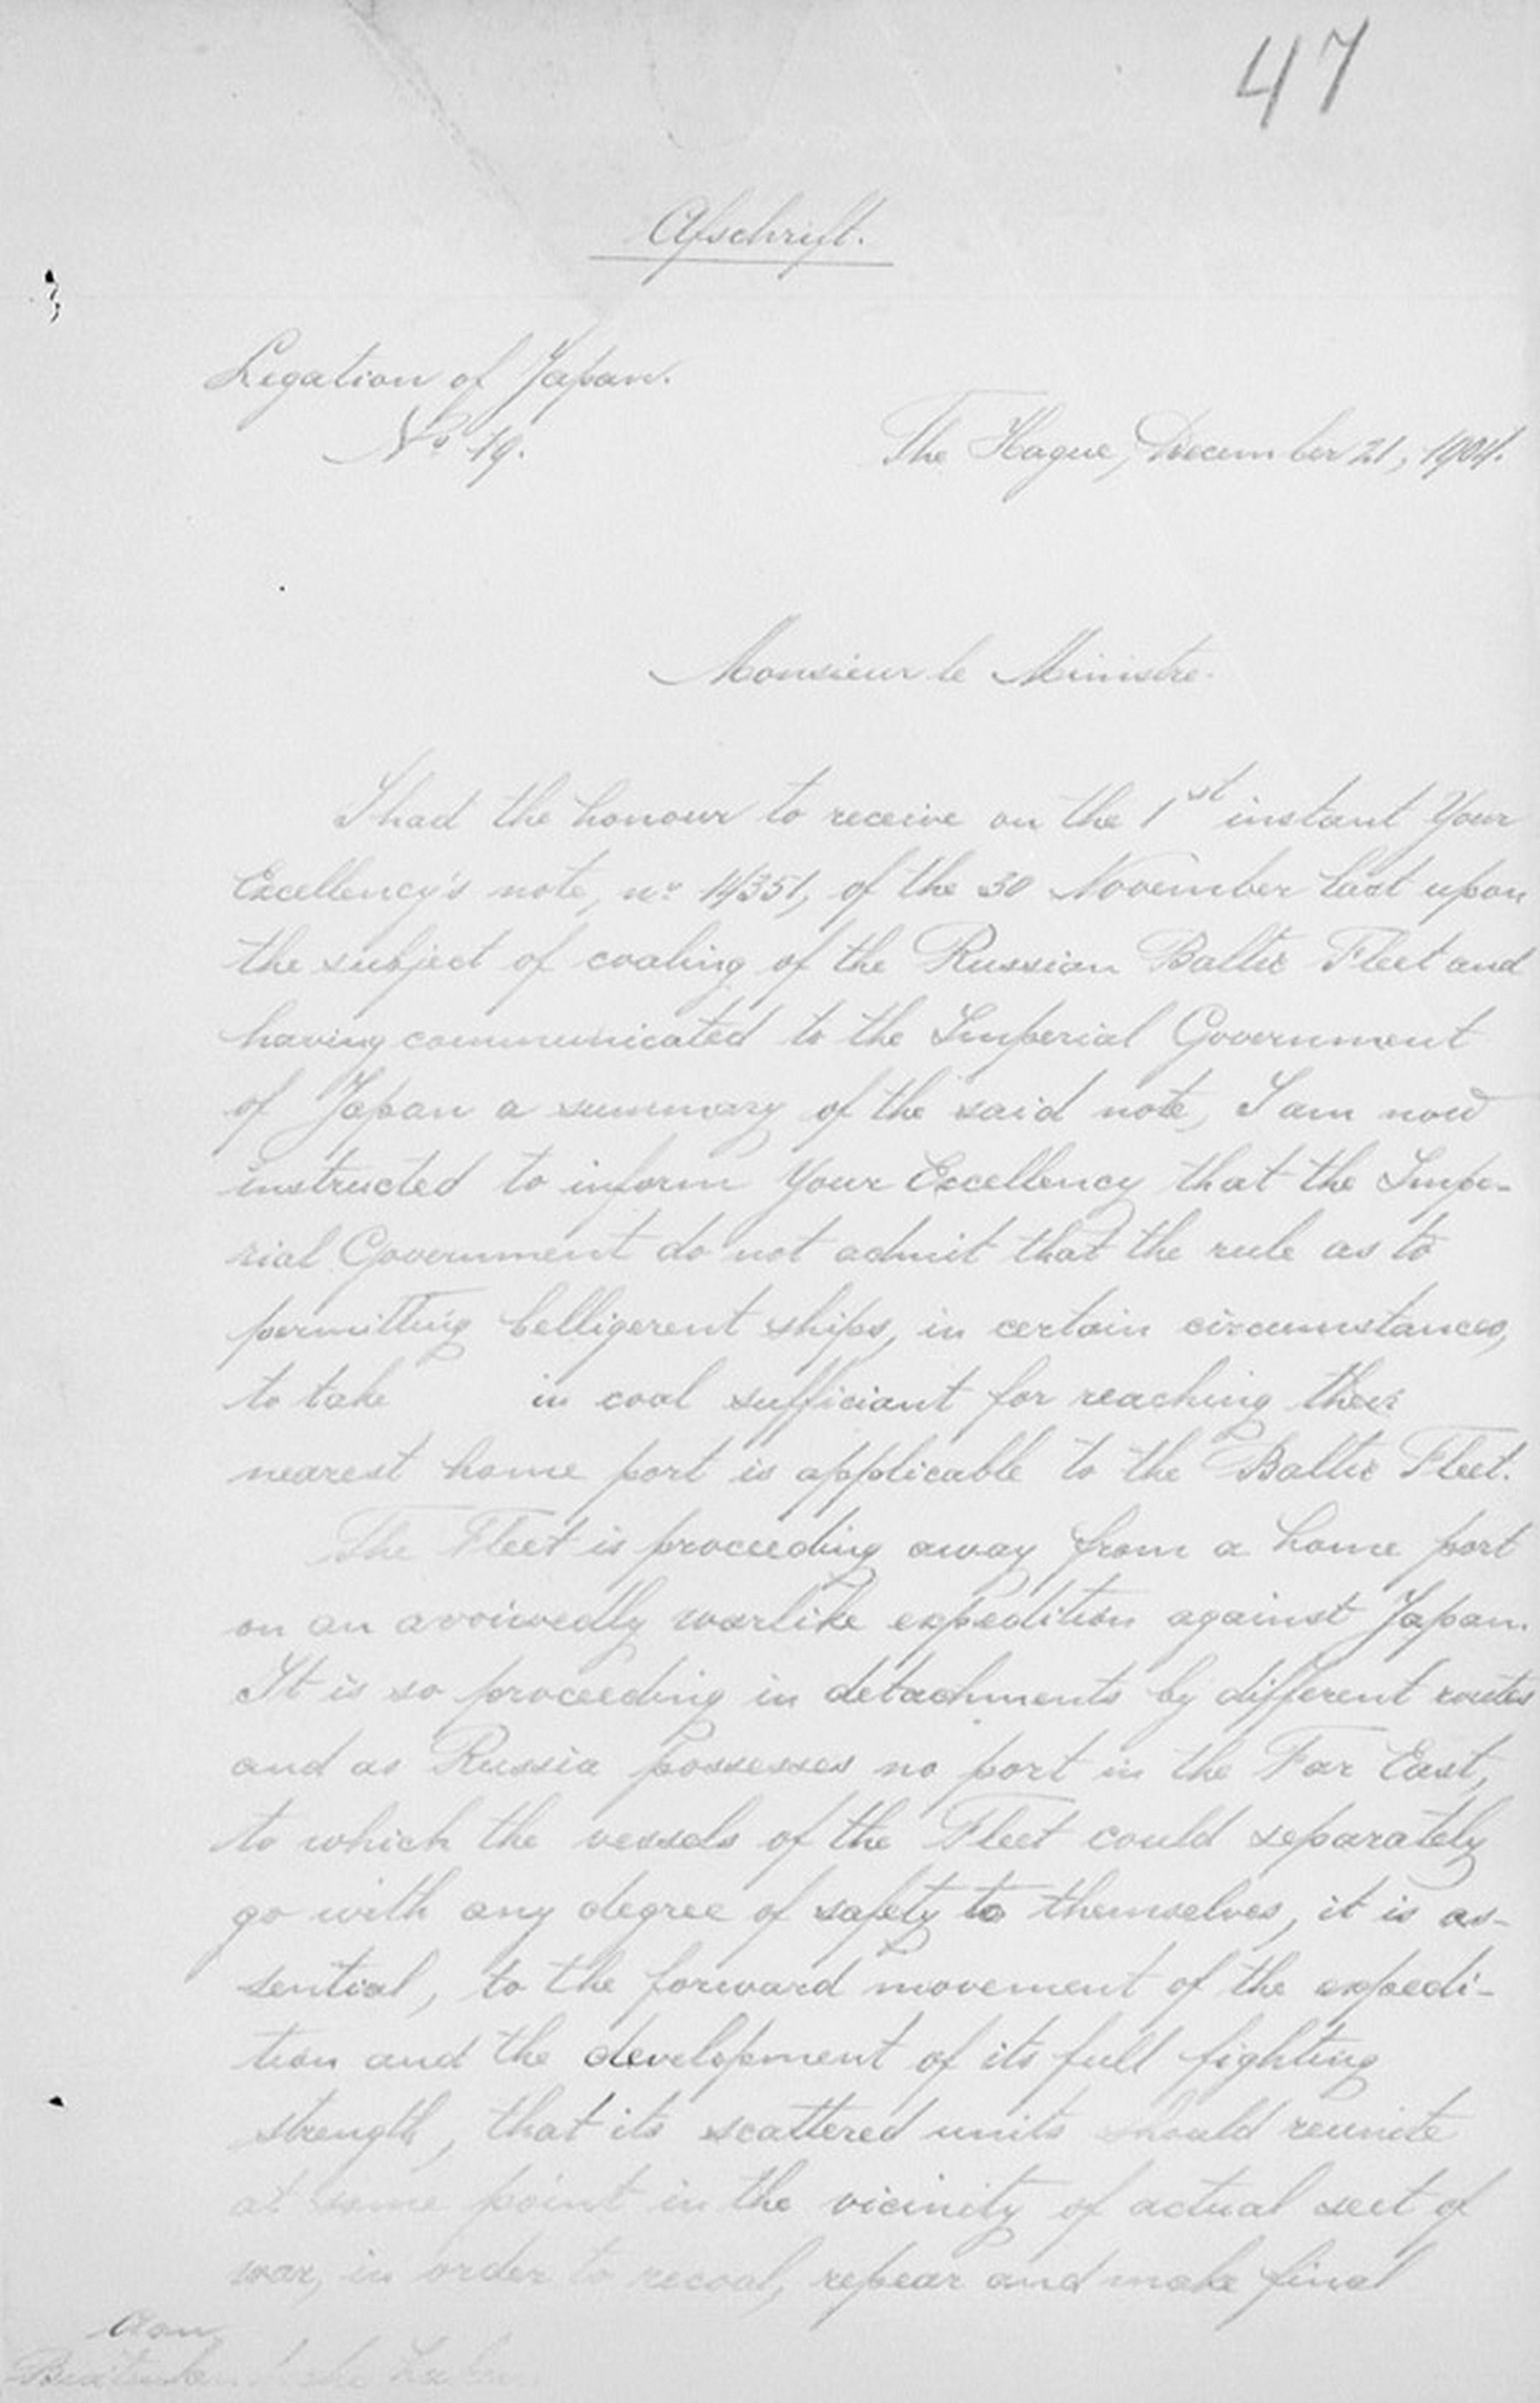 47
Afschrift.
Legation of Japan.
No 19.
The Hague, December 21, 1904.
Monsieur le Ministre.
I had the honour to receive on the 1st instant Your
Excellency's note, no 14351, of the 30 November last upon
the subject of coaling of the Russian Baltic Fleet and
having communicated to the Imperial Government
of Japan a summary of the said note, I am now
instructed to inform Your Excellency that the Impe-
rial Government do not admit that the rule as to
permitting belligerent ships, in certain circumstances,
to take in coal sufficiant for reaching their
nearest home port is applicable to the Baltic Fleet.
The Fleet is proceeding away from a home port
on an avouvedly warlike expedition against Japan.
It is so proceeding in detachments by different routes
and as Russia possesses no port in the Far East,
to which the vessels of the Fleet could separately
go with any degree of safety to themselves, it is as-
sential, to the forward movement of the expedi-
tion and the development of its full fighting
strength, that its scattered units should reunite
at some point in the vicinity of actual seet of
war, in order to recoal, repear and make final
Aan